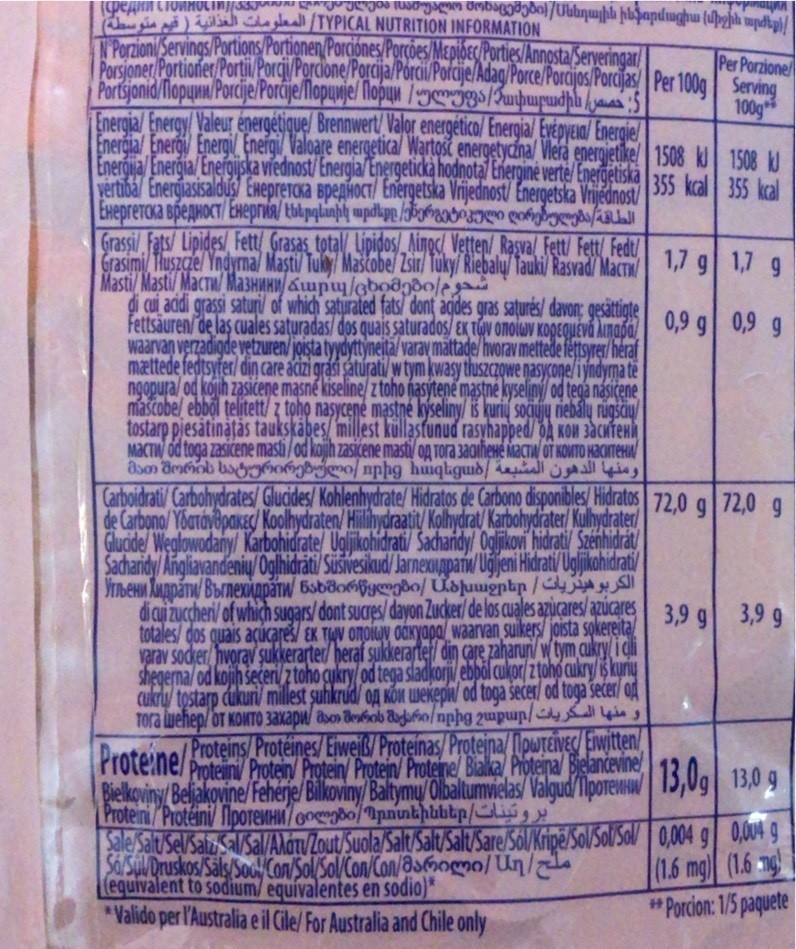 (средни стойности)/
المعلومات الغذائية ( قيم متوسطة) /TYPICAL NUTRITION INFORMATION
N°Porzioni/Servings/Portions/Portionen/Porciónes/Porções/Μερίδες/Porties/Annosta/Serveringar/
Porsjoner/Portioner/Porții/Porcji/Porcione/Porcija/Porcii/Porcije/Adag/Porce/Porcijos/Porcijas/
Portsjonid/Порции/Porcije/Porcije/Порције/ Порци /ულუფა/Չափաբաժին/حصص :5
Per 100g
Per Porzione/
Serving
100g**
Energia/ Energy/ Valeur énergétique/ Brennwert/ Valor energético/ Energia/ Ενέργεια/ Energie/
Energia/ Energi/ Energi/ Energi/ Valoare energetica/ Wartość energetyczna/ Vlera energjetike/
Energija/ Energia/ Energijska vrednost/ Energia/ Energetická hodnota/ Energinė vertė/ Enerģētiskā
vērtība/ Energiasisaldus/ Енергетска вредност/ Energetska Vrijednost/ Energetska Vrijednost/
Енергетска вредност/ Енергия/ Էներգետիկ արժեքը /ენერგეტიკული ღირებულება/الطاقة
1508 kJ 1508 kJ
355 kcal 355 kcal
Grassi/ Fats/ Lipides/ Fett/ Grasas total/ Lipidos/ Λίπος/ Vetten/ Rasva/ Fett/ Fett/ Fedt/
Grasimi/ Tłuszcze/ Yndyrna/ Masti/ Tuky/ Maščobe/ Zsir/ Tuky/ Riebalų/ Tauki/ Rasvad/ Масти/
Masti/ Masti/ Масти/ Мазнини/ Ճարպ/ცხიმები/شحوم
1,7 g 1,7 g
di cui acidi grassi saturi/ of which saturated fats/ dont acides gras saturés/ davon: gesättigte
Fettsäuren/ de las cuales saturadas/ dos quais saturados/ εκ των οποίων κορεσμένα λιπαρά/
waarvan verzadigde vetzuren/ joista tyydyttyneitä/ varav mättade/ hvorav mettede fettsyrer/ heraf
mættede fedtsyrer/ din care acizi grasi saturati/ w tym kwasy tłuszczowe nasycone/ i yndyrna të
ngopura/ od kojih zasićene masne kiseline/ z toho nasýtené mastné kyseliny/ od tega nasičene
maščobe/ ebből telített/ z toho nasycené mastné kyseliny/ iš kurių sočiųjų riebalų rūgščių/
tostarp piesātinātās taukskābes/ millest küllastunud rasvhapped/ од кои заситени
масти/ od toga zasićene masti/ od kojih zasićene masti/ од тога засићене масти/ от които наситени/
მათ შორის სატურირებული/ որից հագեցած/ ومنها الدهون المشبعة
0,9 g 0,9 g
Carboidrati/ Carbohydrates/ Glucides/ Kohlenhydrate/ Hidratos de Carbono disponibles/ Hidratos
de Carbono/ Υδατάνθρακες/ Koolhydraten/ Hiilihydraatit/ Kolhydrat/ Karbohydrater/ Kulhydrater/
Glucide/ Węglowodany/ Karbohidrate/ Ugljikohidrati/ Sacharidy/ Ogljikovi hidrati/ Szénhidrát/
Sacharidy/ Angliavandenių/ Ogļhidrāti/ Süsivesikud/ Јагнехидрати/ Ugljeni Hidrati/ Ugljikohidrati/
Угљени Хидрати/ Въглехидрати/ ნახშირწყლები/ Ածխաջրեր / الكربوهيدريات
72,0 g 72,0 g
di cui zuccheri/ of which sugars/ dont sucres/ davon Zucker/ de los cuales azúcares/ azúcares
totales/ dos quais açúcares/ εκ των οποίων σάκχαρα/ waarvan suikers/ joista sokereita/
varav socker/ hvorav sukkerarter/ heraf sukkerarter/ din care zaharuri/ w tym cukry/ i cili
shegerna/ od kojih šećeri/ z toho cukry/ od tega sladkorji/ ebből cukor/ z toho cukry/ iš kurių
cukrų/ tostarp cukuri/ millest suhkrud/ од кои шеќери/ od toga šećer/ od toga šećer/ од
тога шећер/ от които захари/ მათ შორის შაქარი/որից շաքար/ و منها السكريات
3,9 g 3,9 g
Proteine/ Proteins/ Protéines/ Eiweiß/ Proteínas/ Proteina/ Πρωτεΐνες/ Eiwitten/
Proteiini/ Protein/ Protein/ Protein/ Proteine/ Białka/ Proteina/ Bjelančevine/
Bielkoviny/ Beljakovine/ Fehérje/ Bílkoviny/ Baltymų/ Olbaltumvielas/ Valgud/ Протеини/
Proteini/ Proteini/ Протеини/ ცილები/ Պրոտեիններ/ بروتينات
13,0g 13,0 g
Sale/Salt/Sel/Salz/Sal/Sal/Αλάτι/Zout/Suola/Salt/Salt/Salt/Sare/Sól/Kripë/Sol/Soľ/Sol/
Só/Sůl/Druskos/Sāls/Sool/Сол/Sol/Sol/Сол/Сол/მარილი/ Աղ/ملح
(equivalent to sodium/ equivalentes en sodio)*
0,004 g 0,004 g
(1.6 mg) (1.6 mg)
* Valido per l'Australia e il Cile/ For Australia and Chile only
** Porcion: 1/5 paquete